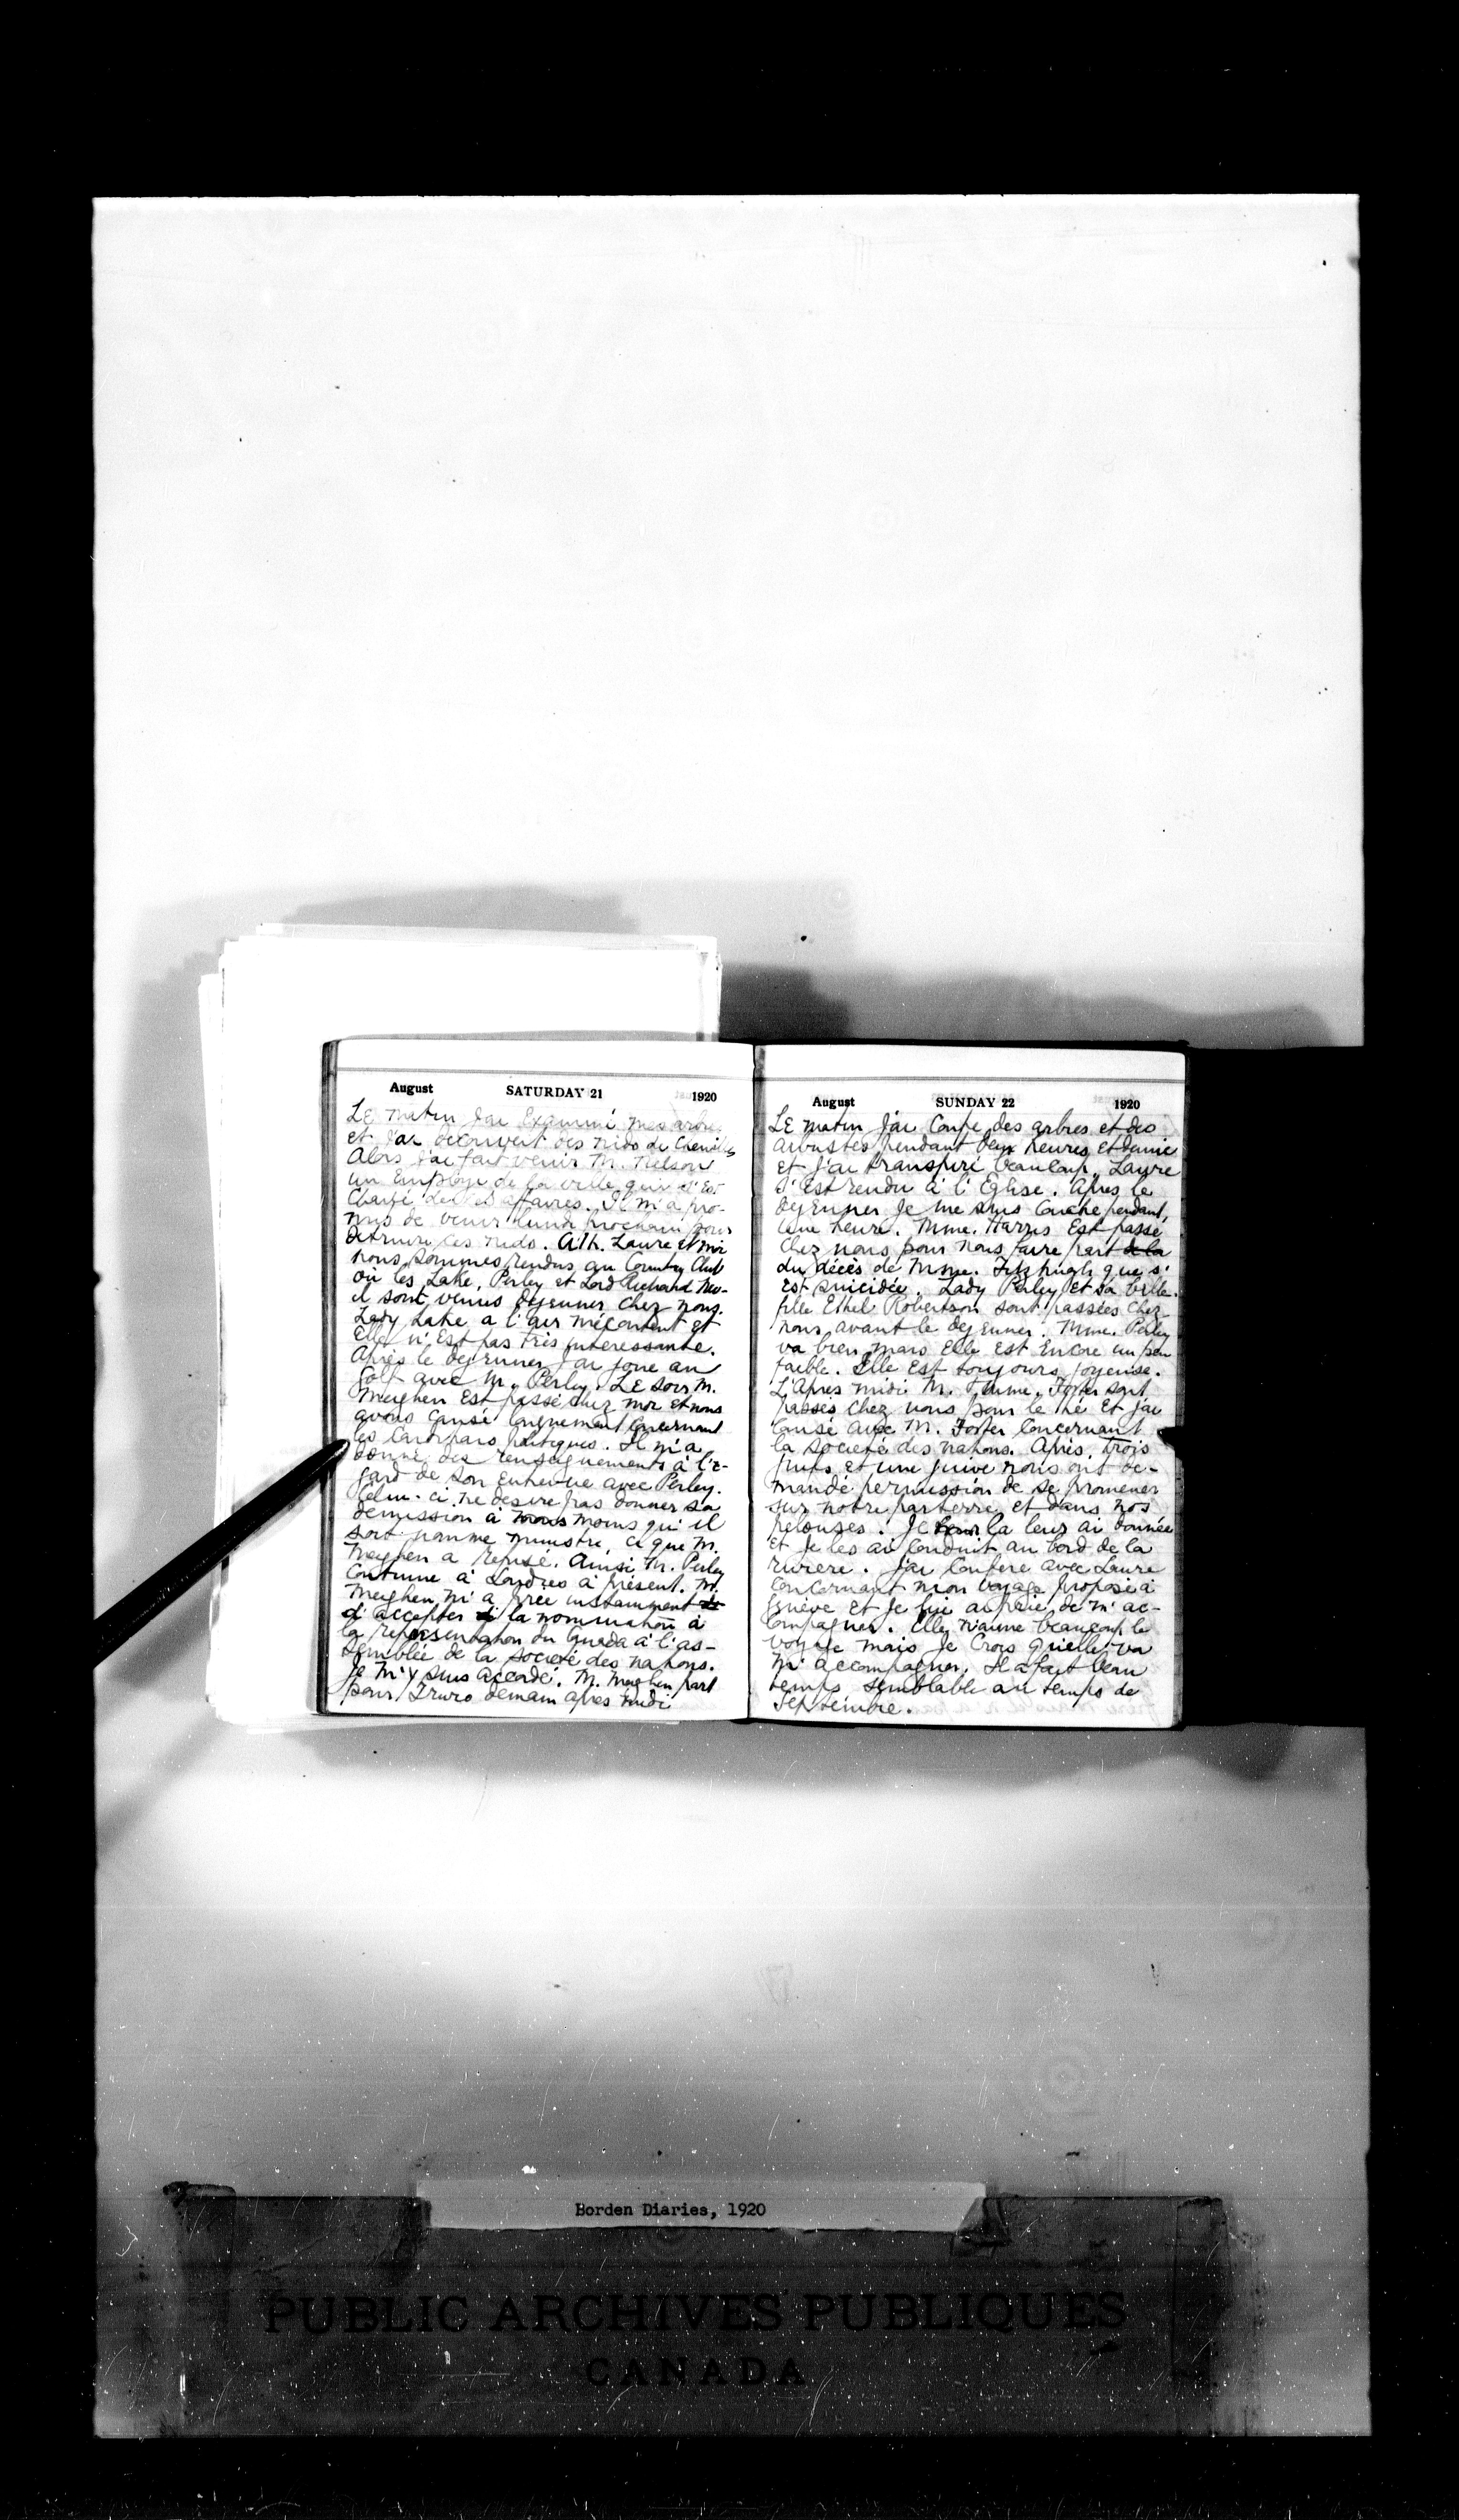 August SATURDAY 21 1920
LE matin J'ai Examiné mes arbres
et J'ai decouvert des nids de Chenilles
Alors J'ai fait venir M. Nelson
un Employe de la ville qui s'Est
Chargé de ces affaires. Il m'a pro-
mis de venir lundi prochain pour
detruire ces nids. A 1 h. Laure et moi
nous sommes rendus au Country Club
où les Lake, Perley et Lord Richard Nev-
il sont venus dejeuner chez nous.
Lady Lake a l'air mécontent et
Elle n'Est pas très interessante.
Après le dejeuner J'ai joué au
Golf avec M. Perley. LE soir M.
Meighen Est passé chez moi et nous
avons causé longuement Concernant
les Canadiens politiques. Il m'a
donné des renseignements à l'e-
gard de son Entrevue avec Perley.
Celui-ci ne desire pas donner sa
demission à moins qu'il
soit nommé ministre, ce que M.
Meighen a refusé. Ainsi M. Perley
Continue à Londres à présent. M.
Meighen m'a prié instamment de
d'accepter la nomination à
la representation du Canada à l'as-
semblée de la société des nations.
Je m'y suis accordé. M. Meighen part
pour Truro demain après midi
August SUNDAY 22 1920
LE matin J'ai Coupé des arbres et des
arbustes pendant deux heures et demie
et J'ai transpiré beaucoup. Laure
s'est rendu à l'Eglise. Après le
dejeuner Je me suis Couché pendant
une heure. Mme. Harris Est passé
chez nous pour nous faire part de la
du décès de Mme. Fitzhugh que s'
est suicidée. Lady Perley et sa belle-
fille Ethel Robertson sont passées chez
nous avant le dejeuner. Mme. Perley
va bien mais Elle est Encore un peu
faible. Elle Est toujours joyeuse.
L'Après midi M. et Mme. Foster sont
passés chez nous pour le thé Et J'ai
Causé avec M. Foster Concernant
la société des nations. Après, trois
juifs et une juive nous ont de-
mandé permission de se promener
sur notre parterre et dans nos
pelouses. Je la leur ai donnée
Et Je les ai Conduit au bord de la
riviere. J'ai Conferé avec Laure
Concernant mon voyage proposé à
Genève Et Je lui ai prié de m'ac-
compagner. Elle n'aime beaucoup le
voyage mais Je Crois qu'elle va
m'accompagner. Il a fait beau
temps semblable au temps de
Septembre.
Borden Diaries, 1920
PUBLIC ARCHIVES PUBLIQUES
CANADA